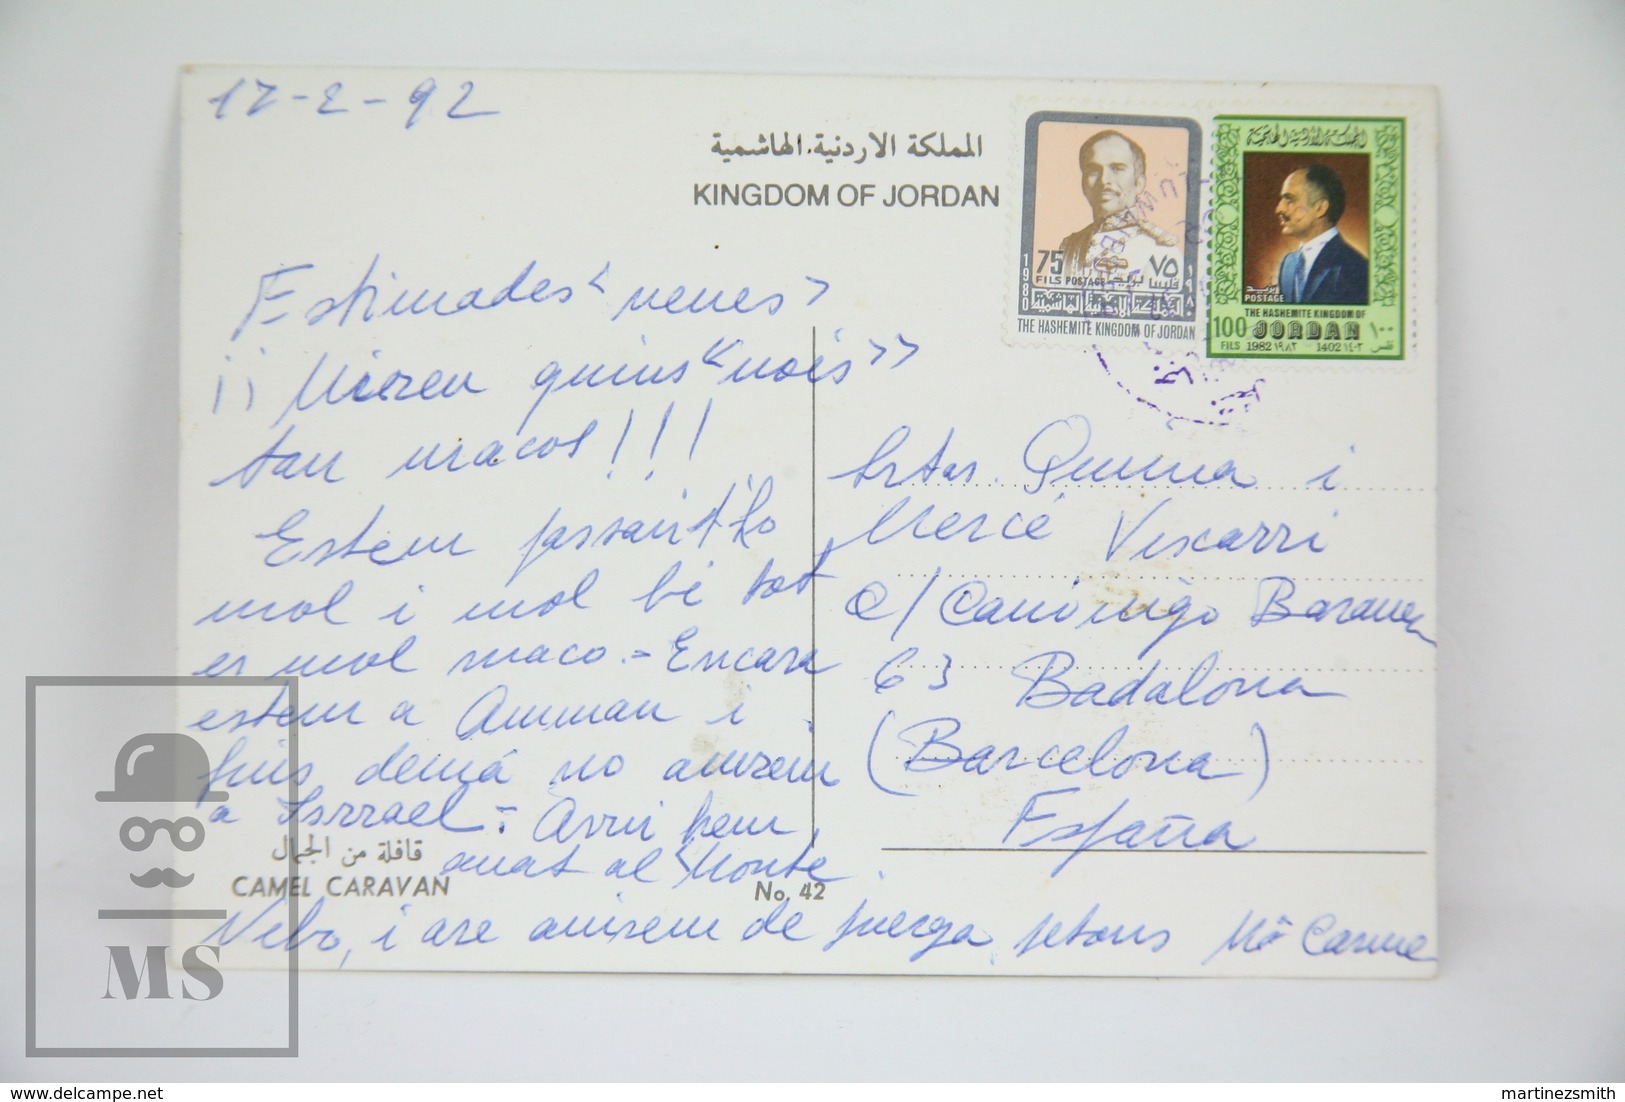 17-2-92
المملكة الاردنية الهاشمية
KINGDOM OF JORDAN
Estimades "nenes"
¡¡ Mireu quins "nois"
tan macos!!!
Estem passant-ho
mol i mol bé tot
es mol maco.- Encara
estem a Amman i
fins demá no anirem
a Isrrael - Avui hem
anat al Monte
Nebo, i are anirem de juerga, petons Mª Carme
قافلة من الجمال
CAMEL CARAVAN
No. 42
75
FILS POSTAGE
٧٥
1980
١٩٨٠
المملكة الاردنية الهاشمية
THE HASHEMITE KINGDOM OF JORDAN
المملكة الاردنية الهاشمية
بريد
POSTAGE
THE HASHEMITE KINGDOM OF
100 JORDAN ١٠٠
FILS 1982 ١٩٨٢ 1402 ١٤٠٢ فلس
Srtas. Gemma i
Mercé Viscarri
c/ Canónigo Baranera
63 Badalona
(Barcelona)
España
MS
www.delcampe.net
martinezsmith